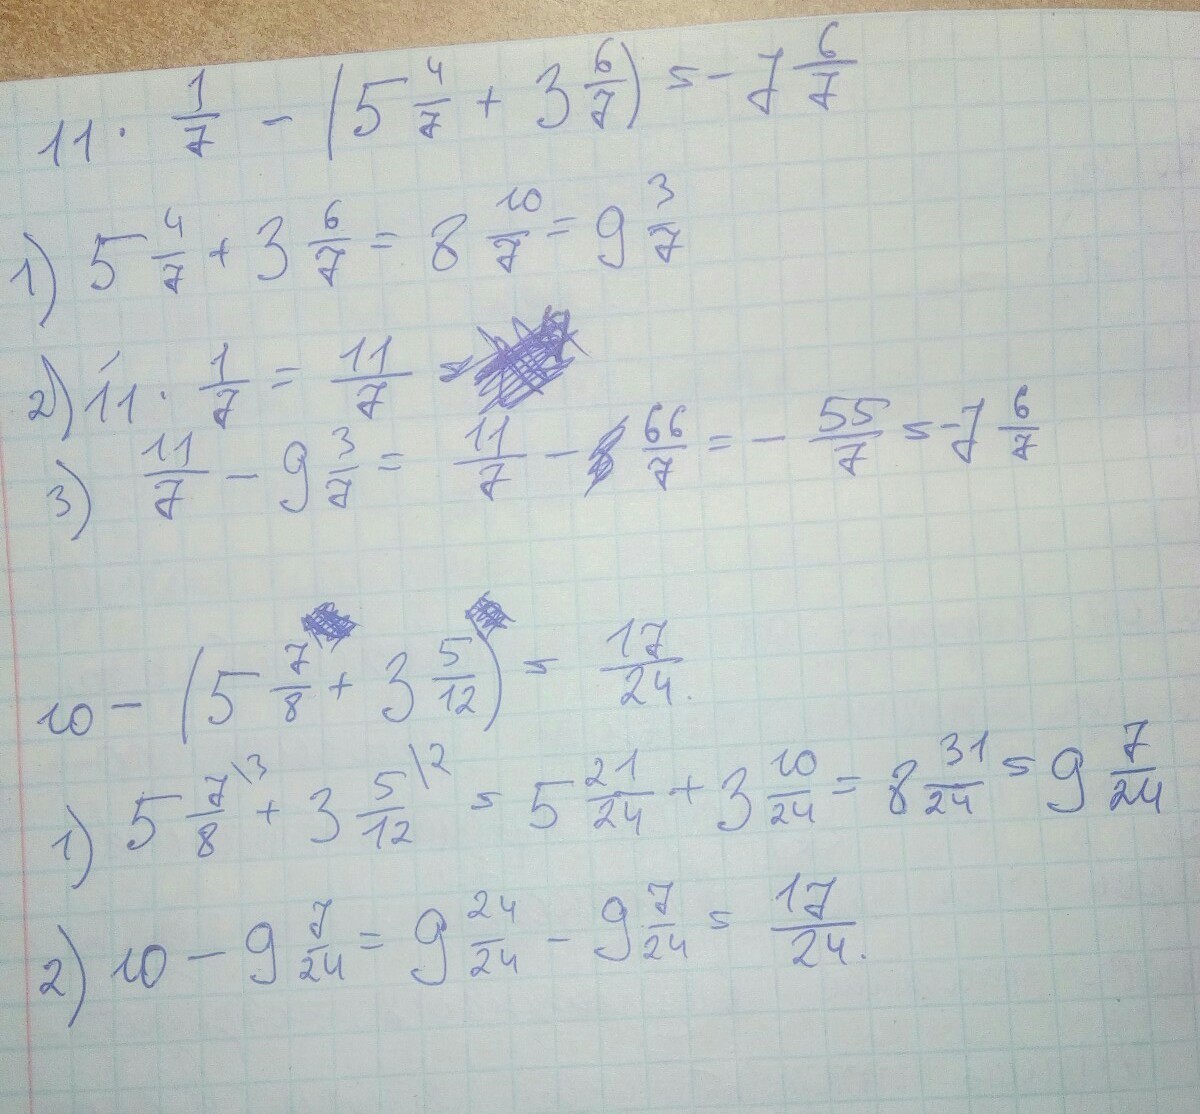 11 · 1/7 - (5 4/7 + 3 6/7) = -7 6/7
1) 5 4/7 + 3 6/7 = 8 10/7 = 9 3/7
2) 11 · 1/7 = 11/7 =
3) 11/7 - 9 3/7 = 11/7 - 66/7 = - 55/7 = -7 6/7
10 - (5 7/8 + 3 5/12) = 17/24.
1) 5 7/8 \3 + 3 5/12 \2 = 5 21/24 + 3 10/24 = 8 31/24 = 9 7/24
2) 10 - 9 7/24 = 9 24/24 - 9 7/24 = 17/24.